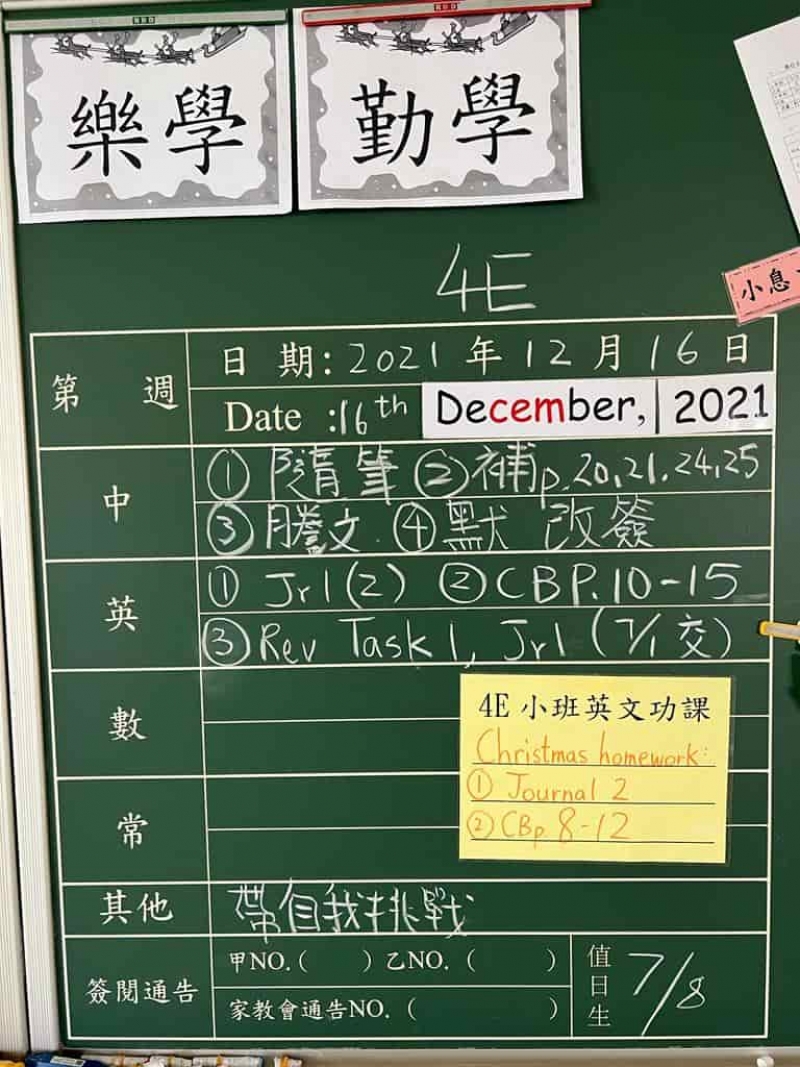 樂學
勤學
4E
小息
第 週
日 期: 2021 年 12 月 16 日
Date :16th December, 2021
中
① 隨筆 ② 補p.20,21.24,25
③ 謄文 ④ 默 改簽
英
① Jrl(2) ② CBP.10-15
③ Rev Task 1, Jr1 (7/1 交)
數
4E 小班英文功課
Christmas homework:
① Journal 2
② CBp. 8-12
常
其他
帶自我挑戰
簽閱通告
甲NO.( ) 乙NO. ( )
家教會通告NO. ( )
值日生
7/8